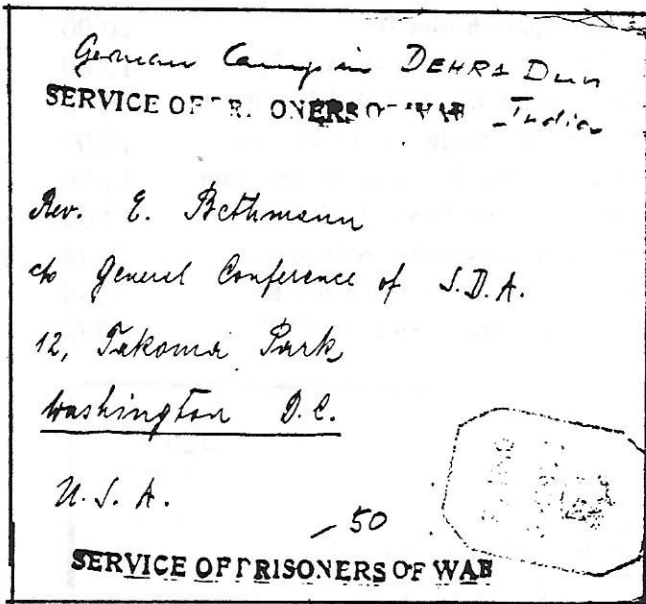 German Camp in DEHRA Dun
SERVICE OF PRISONERS OF WAR India
Rev. E. Bethmann
c/o General Conference of S.D.A.
12, Takoma Park,
Washington D.C.
U.S.A.
-50
SERVICE OF PRISONERS OF WAR